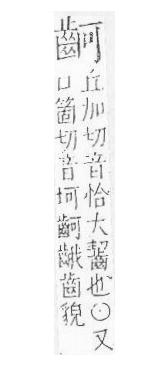 䶗
丘加切音恰大齧也○又
口箇切音坷䶗齒貌